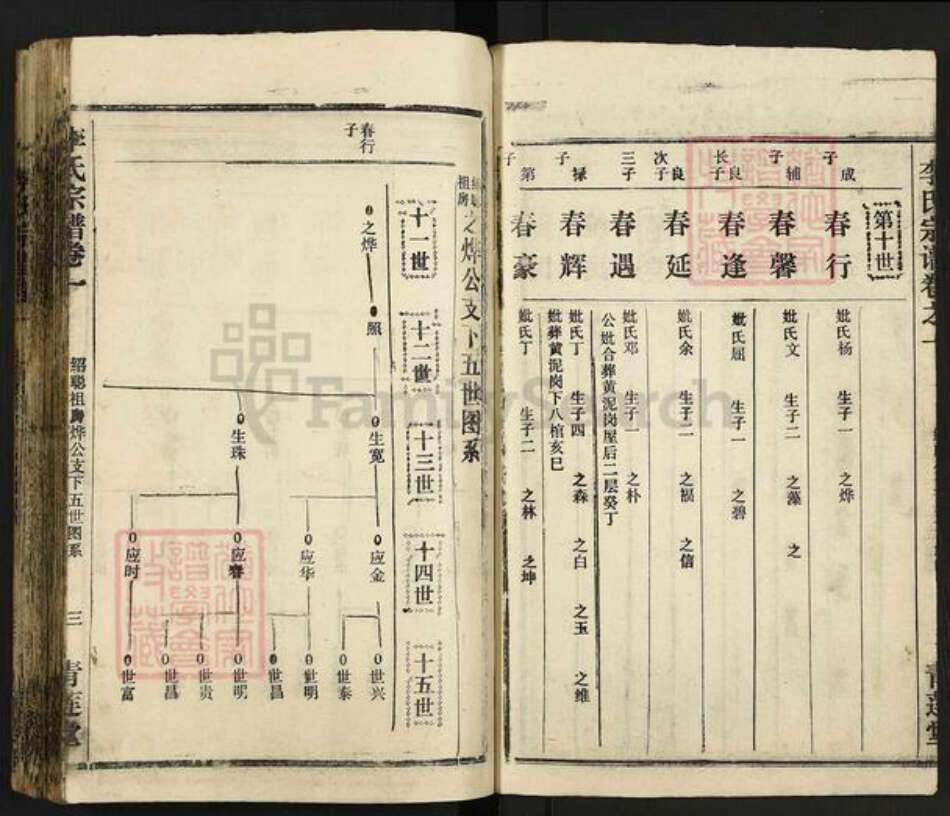 李氏宗谱卷之一
青莲堂
第十世
成子
春行
妣氏杨 生子一 之烨
辅子
春馨
妣氏文 生子二 之藻 之
良长子
春逢
妣氏屈 生子一 之碧
良次子
春延
妣氏余 生子二 之祸 之信
三子
春遇
妣氏邓 生子一 之朴
公妣合葬黄泥岗屋后二层癸丁
禄子
春辉
妣氏丁 生子四 之森 之白 之玉 之维
妣葬黄泥岗下八棺亥巳
第子
春豪
妣氏丁 生子二 之林 之坤
之烨公支下五世图系
十一世
十二世
十三世
十四世
十五世
春行子
之烨
照
生宽
生珠
应金
应华
应春
应时
世兴
世泰
世明
世昌
世明
世贵
世昌
世富
李氏宗谱卷一
绍聪祖房烨公支下五世图系
三
青莲堂
FamilySearch